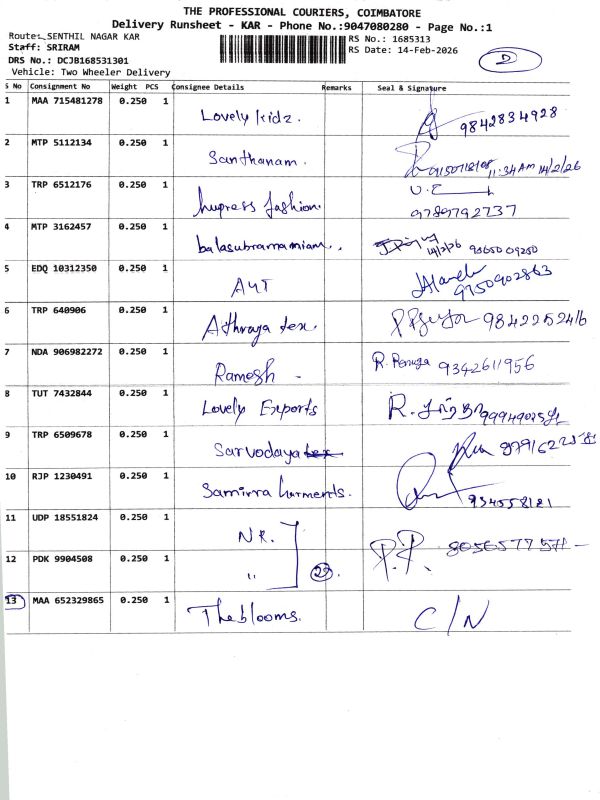 THE PROFESSIONAL COURIERS, COIMBATORE
Delivery Runsheet - KAR - Phone No.:9047080280 - Page No.:1
Route: SENTHIL NAGAR KAR
Staff: SRIRAM
DRS No.: DCJB168531301
Vehicle: Two Wheeler Delivery
RS No.: 1685313
RS Date: 14-Feb-2026
D
S No Consignment No Weight PCS Consignee Details Remarks Seal & Signature
1 MAA 715481278 0.250 1 Lovely kidz. 9842834928
2 MTP 5112134 0.250 1 Santhanam. 11:34 AM 14/2/26
3 TRP 6512176 0.250 1 fashion. 9789792737
4 MTP 3162457 0.250 1 balasubramamiam. 14/2/26
5 EDQ 10312350 0.250 1 9750902863
6 TRP 640906 0.250 1 Athraya tex. 9842252416
7 NDA 906982272 0.250 1 Ramesh - R. 9342611956
8 TUT 7432844 0.250 1 Lovely Exports R.
9 TRP 6509678 0.250 1 Sarvodaya tex
10 RJP 1230491 0.250 1 934558121
11 UDP 18551824 0.250 1 N.R. P.P. 8056577571 -
12 PDK 9904508 0.250 1 "
13 MAA 652329865 0.250 1 The blooms. C/N